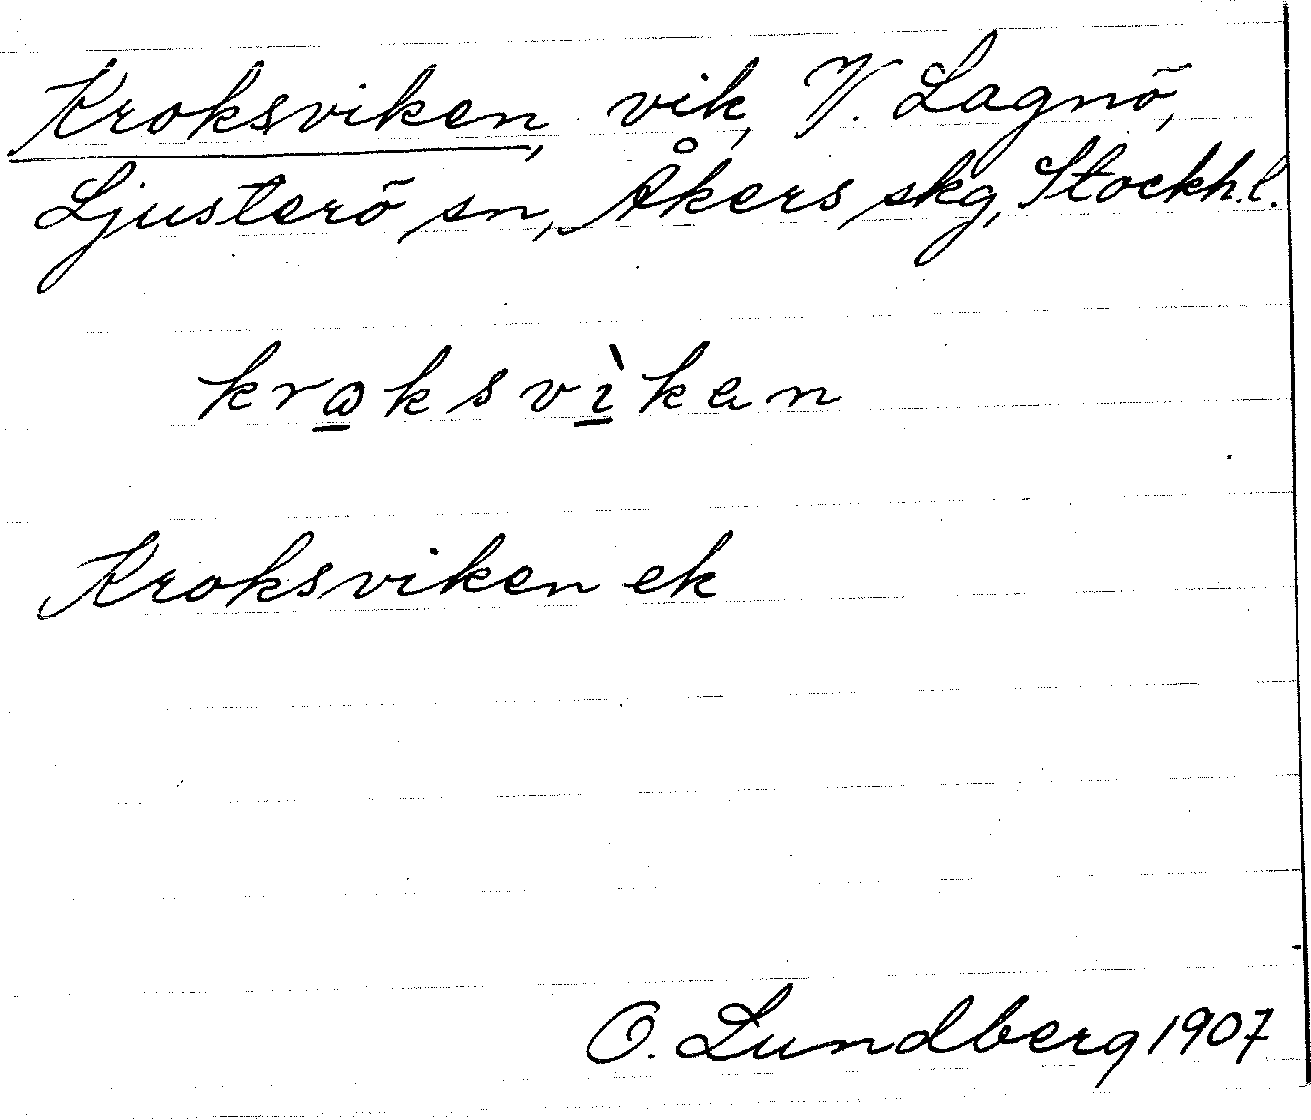 Kroksviken, vik, V. Lagnö,
Ljusterö sn, Åkers skg, Stockh.l.
krɷksvìkən
Kroksviken ek
O. Lundberg 1907